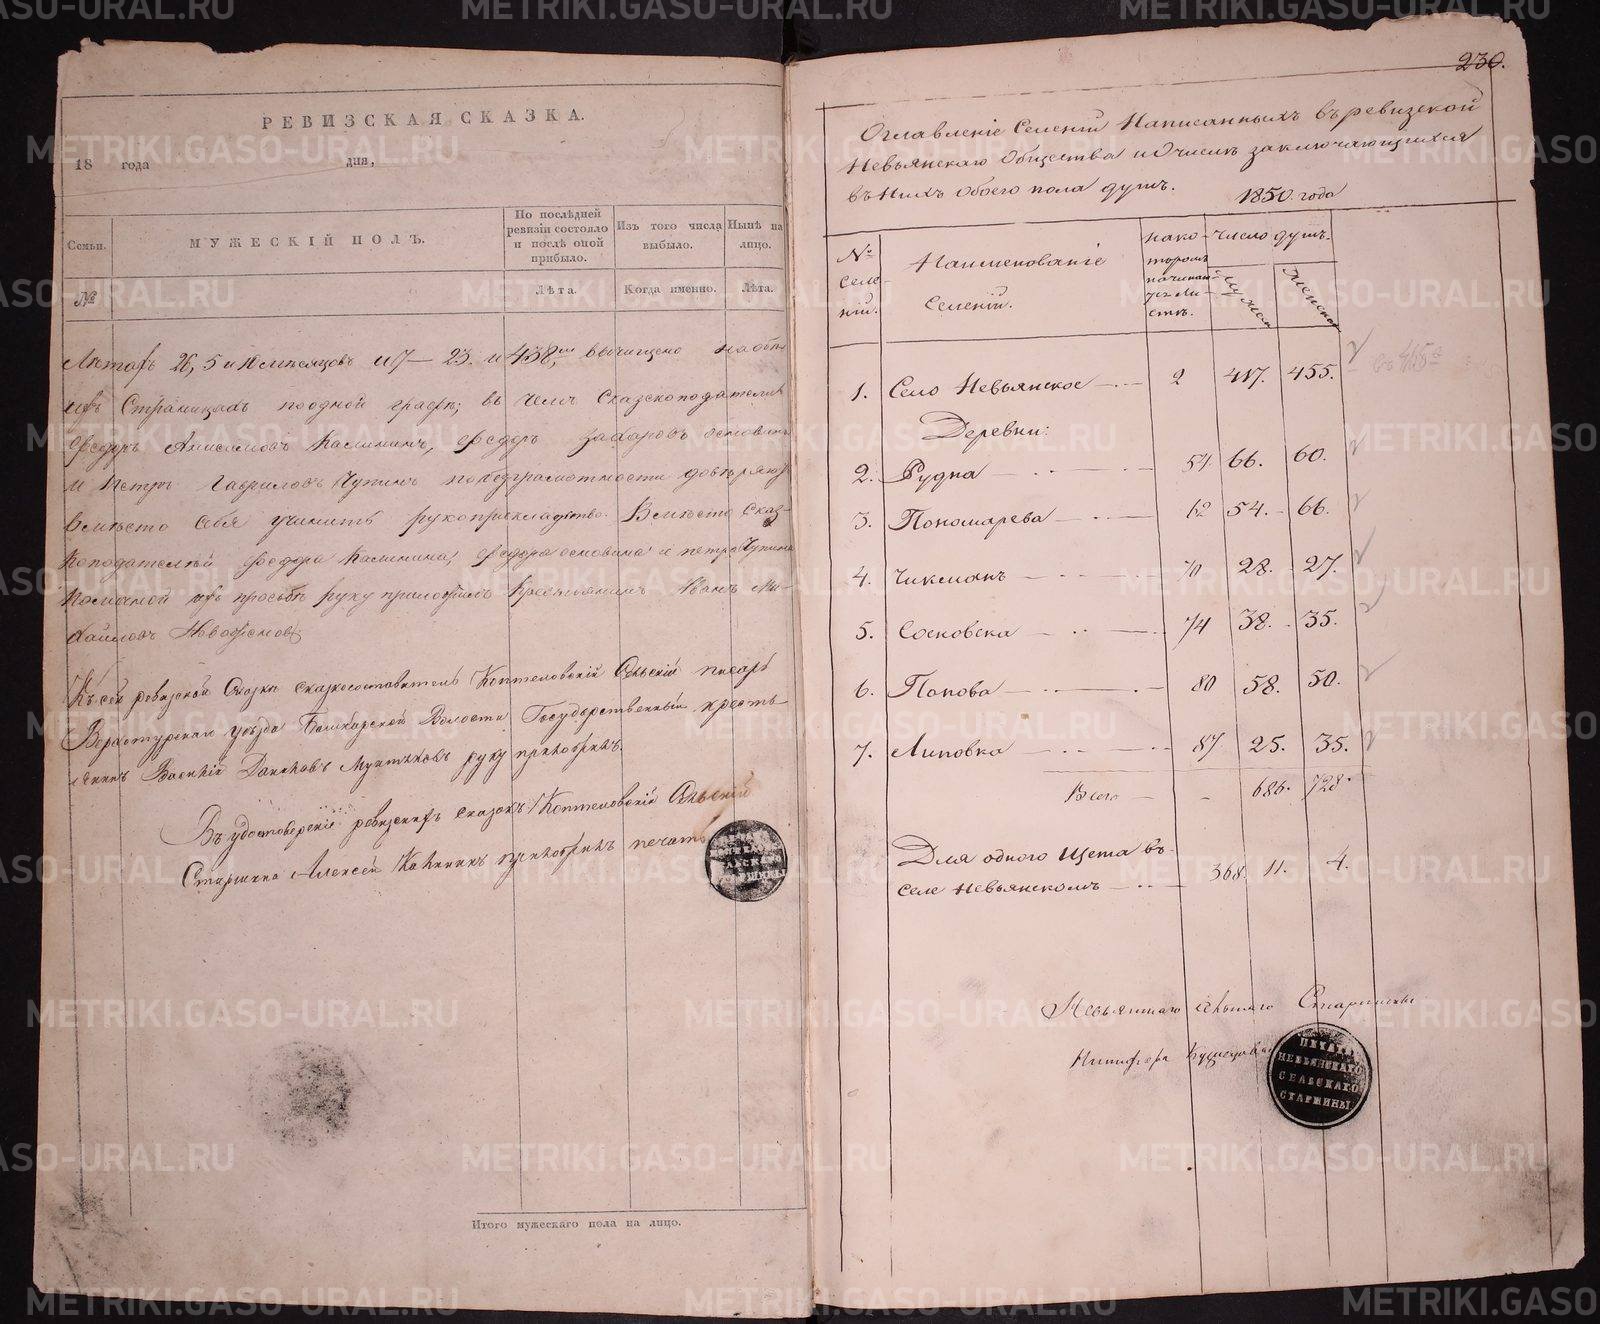 РЕВИЗСКАЯ СКАЗКА.
18 года дня,
Семьи.
№
МУЖЕСКІЙ ПОЛЪ.
По послѣдней ревизіи состояло и послѣ оной прибыло.
Лѣта.
Изъ того числа выбыло.
Когда именно.
Нынѣ на лицо.
Лѣта.
Лѣтахъ 26, 5 и 10 мѣсяцовъ и 7 — 23. и 438, вычищено на
Страницахъ по одной графѣ; въ чемъ Сказскоподатели
Федоръ Анисимовъ Калининъ, Федоръ Захаровъ Основинъ
и Петръ Гавриловъ Чупинъ по безграмотности довѣряютъ
вмѣсто себя учинить рукоприкладство. Вмѣсто Сказ-
коподателей Федора Калинина, Федора Основина и Петра Чупина
по ихъ прозьбѣ руку приложилъ Крестьянинъ Иванъ Ми-
хайловъ
Къ сей ревизской Сказки сказкосоставитель Коптеловскій Сельскій писарь
Верхотурскаго уѣзда Башкарской Волости Государственный кресть-
янинъ Василій Даниловъ руку приложилъ.
Въ удостовѣреніе ревизскихъ сказокъ Коптеловскій Сельскій
Старшина Алексей Калининъ приложилъ печать
Итого мужескаго пола на лицо.
230.
Оглавленіе Селеній Написанныхъ въ ревизской
Невьянскаго Общества и О числѣ заключающихся
въ Нихъ обоего пола душъ. 1850. года
№ селе-ній.
Наименованіе Селеній.
на ко-торомъ начинает-ся ли-стѣ.
число душъ.
Мужск
Женск
1. Село Невьянское 2 417. 455.
Деревни:
2. Рудна 54 66. 60.
3. Пономарева 62 54. 66.
4. Чикманъ 70 28. 27.
5. Сосновска 74 38. 35.
6. Попова 80 58. 50.
7. Липовка 87 25. 35.
Всего — 686. 728.
Для одного Щета въ
селе Невьянскомъ 368. 11. 4.
Невьянскаго сельскаго Старшины
Никифора
ПЕЧАТЬ
НЕВЬЯНСКАГО
СЕЛЬСКАГО
СТАРШИНЫ
METRIKI.GASO-URAL.RU